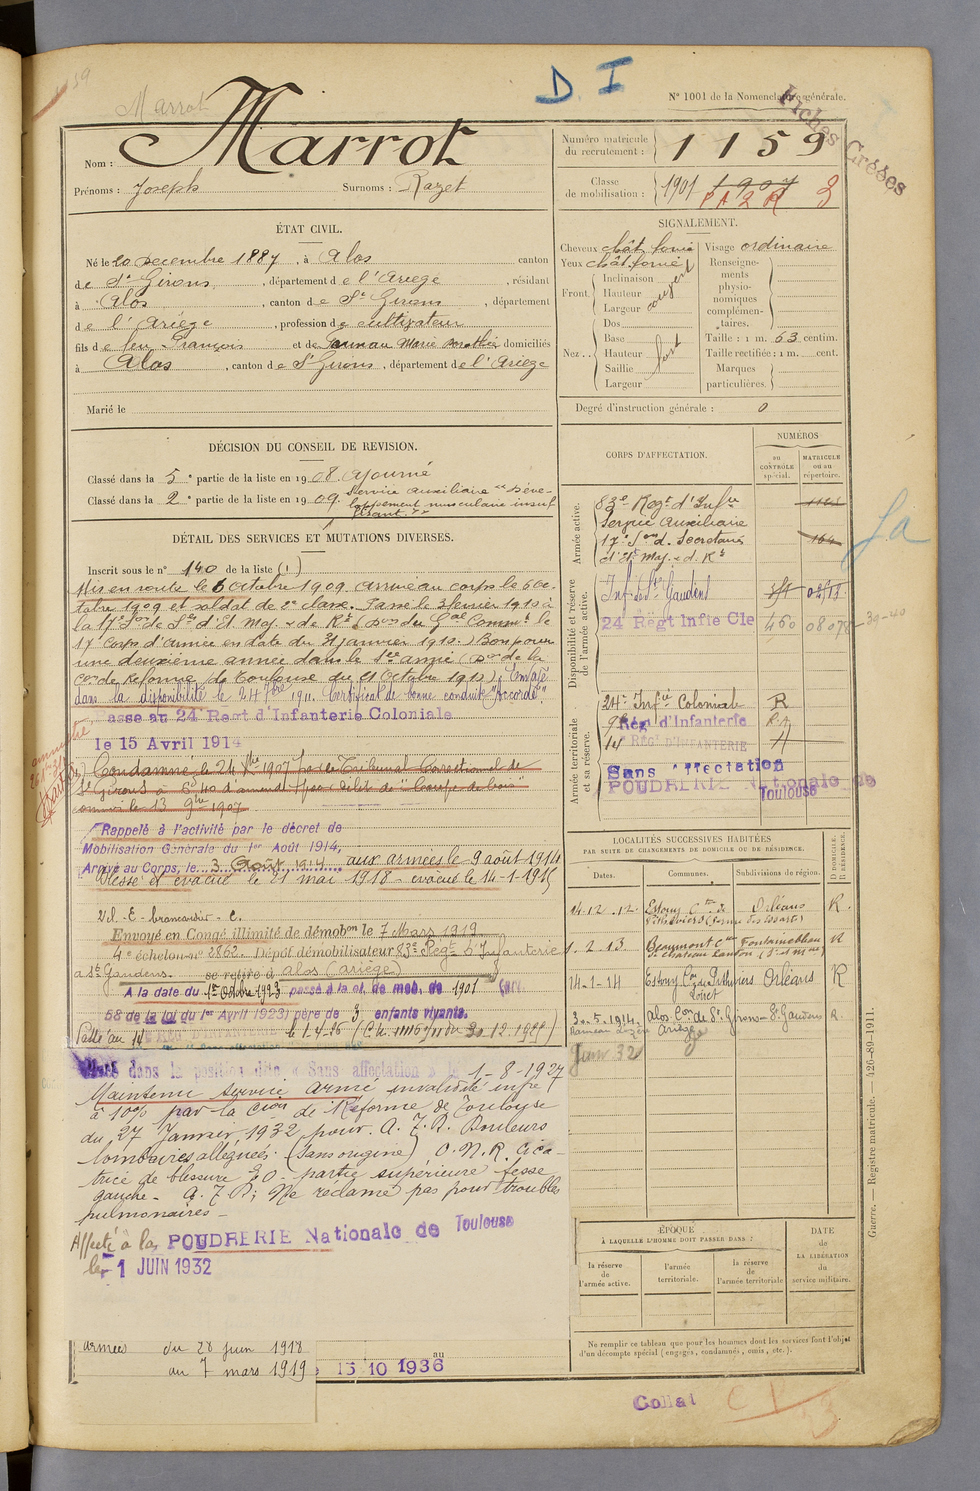 Marrot
D. I
N° 1001 de la Nomenclature générale.
Fiches Créées
Nom : Marrot
Prénoms : Joseph Surnoms : Razet
Numéro matricule du recrutement : 1159
Classe de mobilisation : 1901 1907
ÉTAT CIVIL.
Né le 20 Decembre 1887, à Alos canton
de St Girons, département de l'Ariège, résidant
à Alos, canton de St Girons, département
de l'Ariège, profession de cultivateur
fils de feu François et de Marie domiciliés
à Alos, canton de St Girons, département de l'Ariège
Marié le
SIGNALEMENT.
Cheveux chât. foncé Visage ordinaire
Yeux chât. foncé
Front. Inclinaison Hauteur Largeur moyen
Nez.. Dos Base Hauteur Saillie Largeur fort
Renseignements physionomiques complémentaires.
Taille : 1 m. 63 centim.
Taille rectifiée : 1 m. cent.
Marques particulières.
Degré d'instruction générale : 0
DÉCISION DU CONSEIL DE REVISION.
Classé dans la 5e partie de la liste en 1908. Ajourné
Classé dans la 2e partie de la liste en 1909. Service auxiliaire "Développement musculaire insuffisant."
DÉTAIL DES SERVICES ET MUTATIONS DIVERSES.
Inscrit sous le n° 140 de la liste (1)
Mis en route le 6 octobre 1909. Arrivé au corps le 6 octobre 1909 et soldat de 2e classe. Passé le 3 fevrier 1910 à
la 17e Son de Sres d'Et. Maj. & de Rt Don du Gal Commt le
17e Corps d'Armée en date du 31 janvier 1910. Bon pour
une deuxième année dans le 1er année (Don de la
Con de Réforme de Toulouse du 21 Octobre 1910) Envoyé
dans la disponibilité le 24 7bre 1911. Certificat de bonne conduite "Accordé".
asse au 24 Regt d'Infanterie Coloniale
le 15 Avril 1914
Condamné le 24 Xbre 1907 par le Tribunal Correctionnel de
St Girons à 6f,40 d'amende pour délit de "Coupe de bois"
commis le 13 9bre 1907
Rappelé à l'activité par le décret de
Mobilisation Générale du 1er Août 1914,
Arrivé au Corps, le 3 Août 1914, aux armées le 9 août 1914
Blessé et évacué le 21 mai 1918 - évacué le 14-1-1915
Vel - E - brancardier - C.
Envoyé en Congé illimité de démobon le 7 Mars 1919
4e échelon n° 2862. Dépôt démobilisateur 83e Regt d'Infanterie
à St Gaudens. se retire à Alos (Ariège)
A la date du 1er Octobre 1923 passé à la cl. de mob. de 1901
58 de la loi du 1er Avril 1923) père de 3 enfants vivants.
Passé au 14 Reg d'Infanterie le 1-4-26
dans la position dite « Sans affectation » le 1-8-1927
Maintenu service armé invalidité infre
à 10% par la Cion de Réforme de Toulouse
du 27 Janvier 1932 pour. A.F.R. Douleurs
lombaires alléguées. (sans origine) O.N.R. Cica-
trice de blessure E.O. partie supérieure fesse
gauche - A.F.R; Ne réclame pas pour troubles
pulmonaires -
Affecté à la POUDRERIE Nationale de Toulouse
le 1 JUIN 1932
armées du 28 juin 1918
au 7 mars 1919
au
15 10 1936
CORPS D'AFFECTATION.
NUMÉROS
AU CONTRÔLE spécial.
MATRICULE ou au répertoire.
Armée active.
83e Rogt d'Infie
Service Auxiliaire
17e Son d. Secretaires 164
d'Et. Maj. & d. Rt
Disponibilité et réserve de l'armée active.
Inf. de St Gaudens
24 Régt Infie Cle 460 08078 39-40
Armée territoriale et sa réserve.
24e Infie Coloniale R
Rég. d'Infanterie
14 RÉGt D'INFANTERIE
Sans Affectation
POUDRERIE Nationale de
Toulouse
LOCALITÉS SUCCESSIVES HABITÉES
PAR SUITE DE CHANGEMENTS DE DOMICILE OU DE RÉSIDENCE.
Dates. Communes. Subdivisions de région. D DOMICILE. R RÉSIDENCE.
14.12.12. Estouy Con de Orléans R.
Pithiviers
1.2.13 Beaumont Con Fontainebleau R
Château Landon (S. et Mne)
24-1-14 Estouy Con de Pithiviers Orléans R
Loiret
30.5.1914. Alos Con de St Girons St Gaudens R.
Ariège
Juin 32
ÉPOQUE
À LAQUELLE L'HOMME DOIT PASSER DANS :
la réserve de l'armée active.
l'armée territoriale.
la réserve de l'armée territoriale
DATE de LA LIBÉRATION du service militaire.
Ne remplir ce tableau que pour les hommes dont les services font l'objet
d'un décompte spécial (engagés, condamnés, omis, etc.).
Guerre. — Registre matricule. — 426-89-1911.